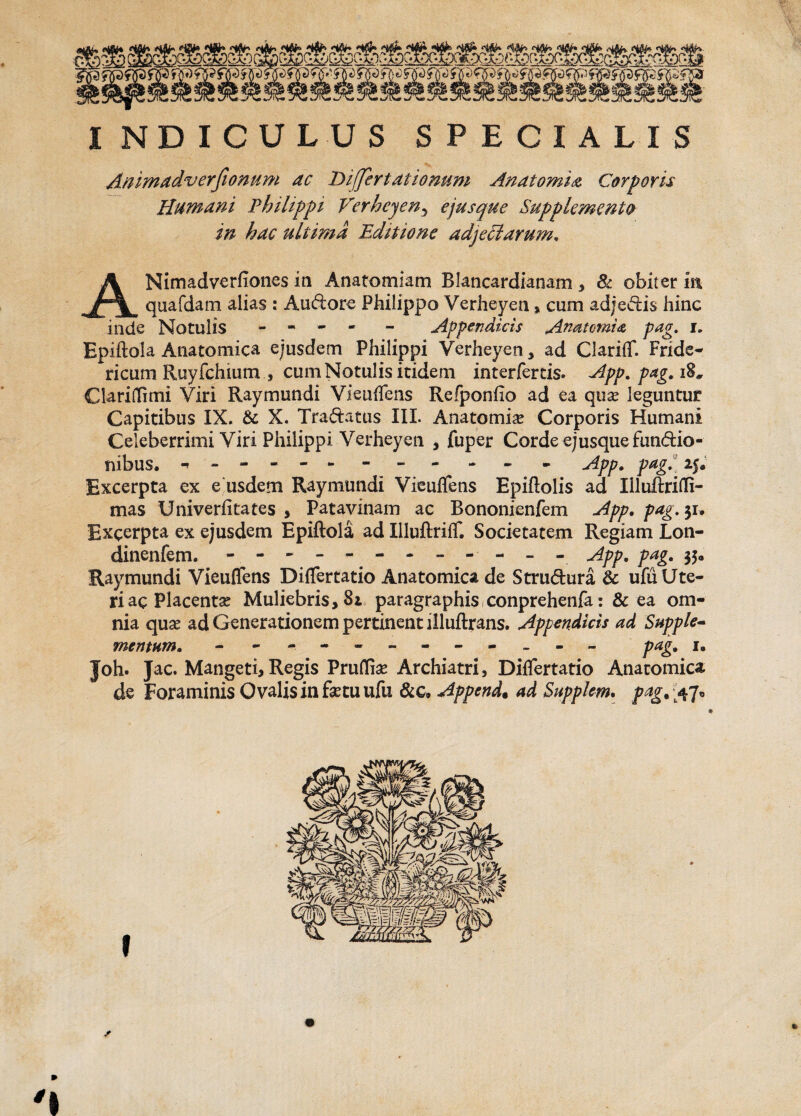 INDICULUS SPECIALIS
Animadverſionum ac Diſſertationum Anatomiæ Corporis
Humani Philippi Verheyen, ejusque Supplemento
in hac ultimâ Editione adjectarum.
ANimadverſiones in Anatomiam Blancardianam, & obiter in
quaſdam alias : Auctore Philippo Verheyen, cum adjectis hinc
inde Notulis - - - - - Appendicis Anatomiæ pag. 1.
Epiſtola Anatomica ejusdem Philippi Verheyen, ad Clariſſ. Fride-
ricum Ruyſchium , cum Notulis itidem interſertis. App. pag. 18.
Clariſſimi Viri Raymundi Vieuſſens Reſponſio ad ea quæ leguntur
Capitibus IX. & X. Tractatus III. Anatomiæ Corporis Humani
Celeberrimi Viri Philippi Verheyen , ſuper Corde ejusque functio-
nibus. - - - - - - - - - - - - - App. pag. 25.
Excerpta ex ejusdem Raymundi Vieuſſens Epiſtolis ad Illuſtriſſi-
mas Univerſitates , Patavinam ac Bononienſem App. pag. 31.
Excerpta ex ejusdem Epiſtolâ ad Illuſtriſſ. Societatem Regiam Lon-
dinenſem. - - - - - - - - - - - - - App. pag. 33.
Raymundi Vieuſſens Diſſertatio Anatomica de Structurâ & uſû Ute-
ri ac Placentæ Muliebris, 82 paragraphis conprehenſa : & ea om-
nia quæ ad Generationem pertinent illuſtrans. Appendicis ad Supple-
mentum. - - - - - - - - - - - - - pag. 1.
Joh. Jac. Mangeti, Regis Pruſſiæ Archiatri, Diſſertatio Anatomica
de Foraminis Ovalis in fætu uſu &c. Append. ad Supplem. pag. 47.